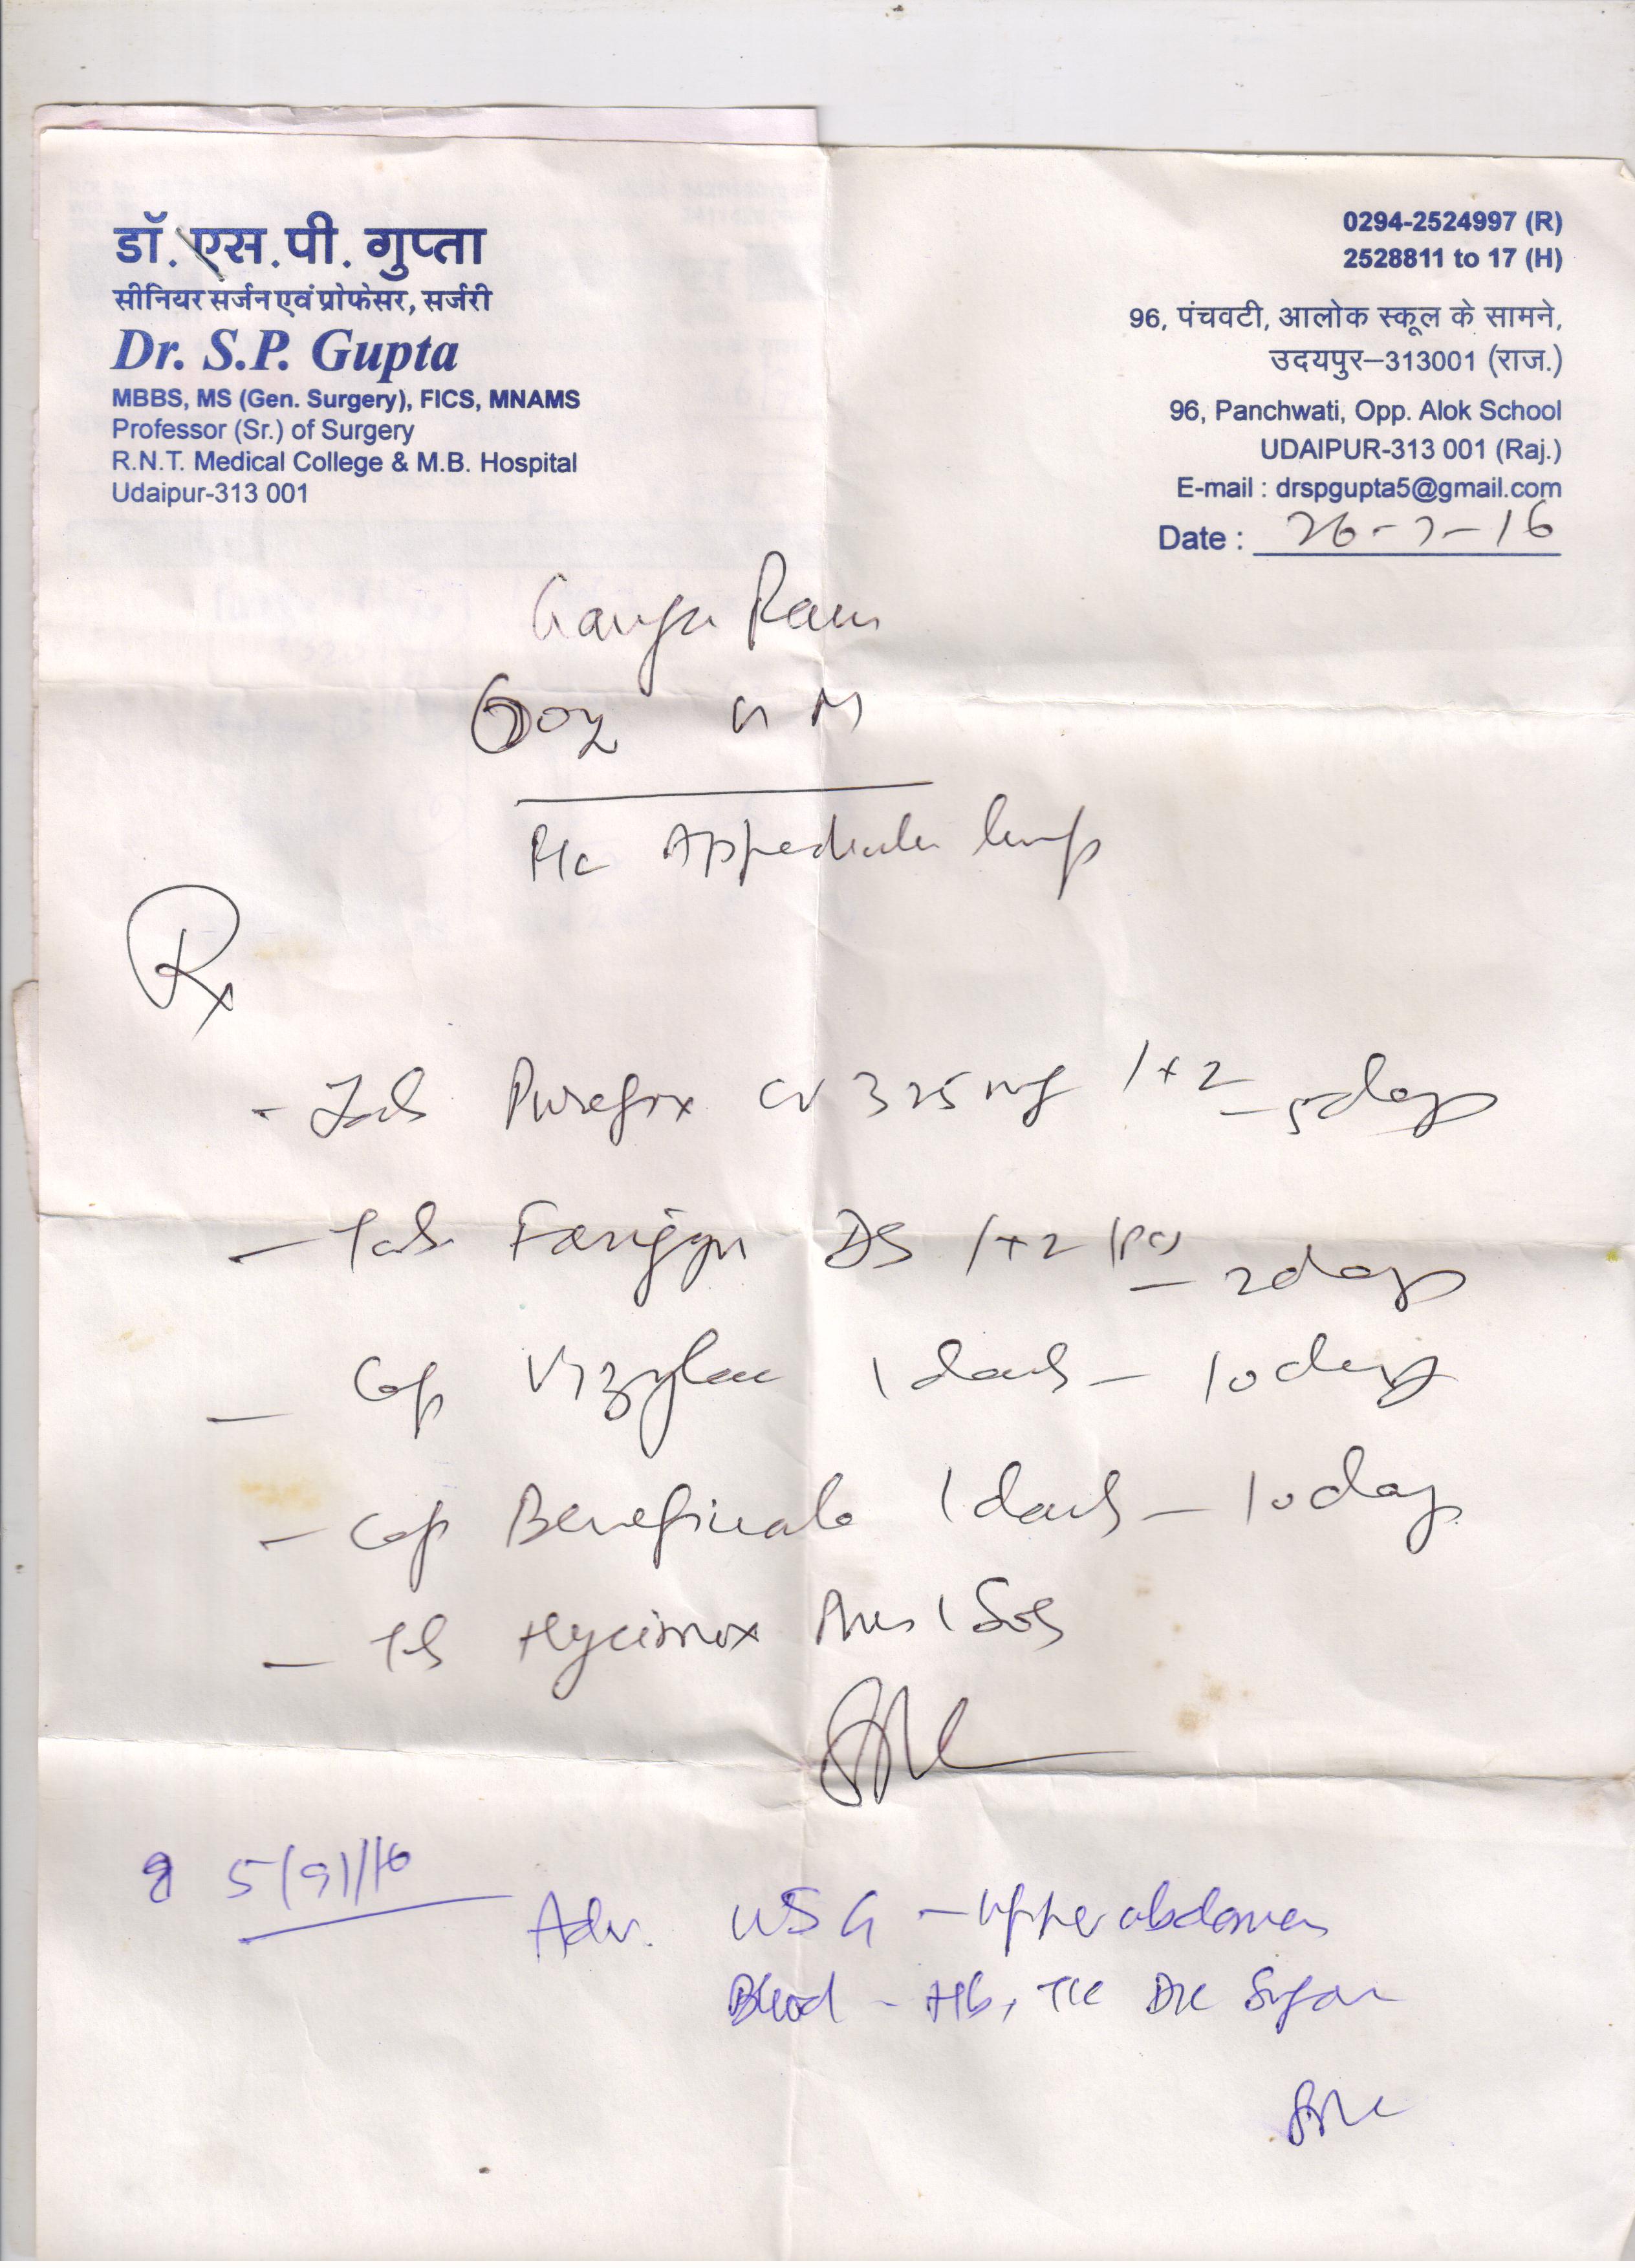 डॉ. एस.पी. गुप्ता
सीनियर सर्जन एवं प्रोफेसर, सर्जरी
Dr. S.P. Gupta
MBBS, MS (Gen. Surgery), FICS, MNAMS
Professor (Sr.) of Surgery
R.N.T. Medical College & M.B. Hospital
Udaipur-313 001
0294-2524997 (R)
2528811 to 17 (H)
96, पंचवटी, आलोक स्कूल के सामने,
उदयपुर–313001 (राज.)
96, Panchwati, Opp. Alok School
UDAIPUR-313 001 (Raj.)
E-mail : drspgupta5@gmail.com
Date : 26-7-16
Ganga Ram
M
Lump
Rx
- Tab CV 325 mg 1x2 - 5 days
- Tab DS 1x2 - 2 days
- Cap Vizylac 1 daily - 10 days
- Cap 1 daily - 10 days
- Tab Plus 1 SOS
5/9/16
Adv. USG - Upper abdomen
Blood - Hb, TLC DLC Sugar